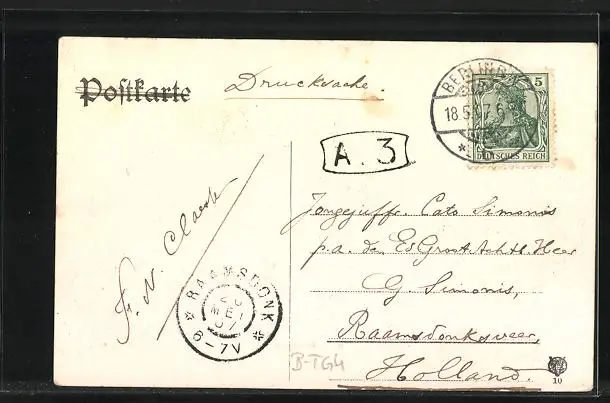 Postkarte
Drucksache.
BERLIN
18.5.
5
DEUTSCHES REICH
A. 3
Jongejuffr. Cato Simonis
p.a. den EdGrootAchtb. Heer
G. Simonis,
Raamsdonksveer,
Holland.
F. N.
RAAMSDONK
20
MEI
07
6-7V
B-TG4
10